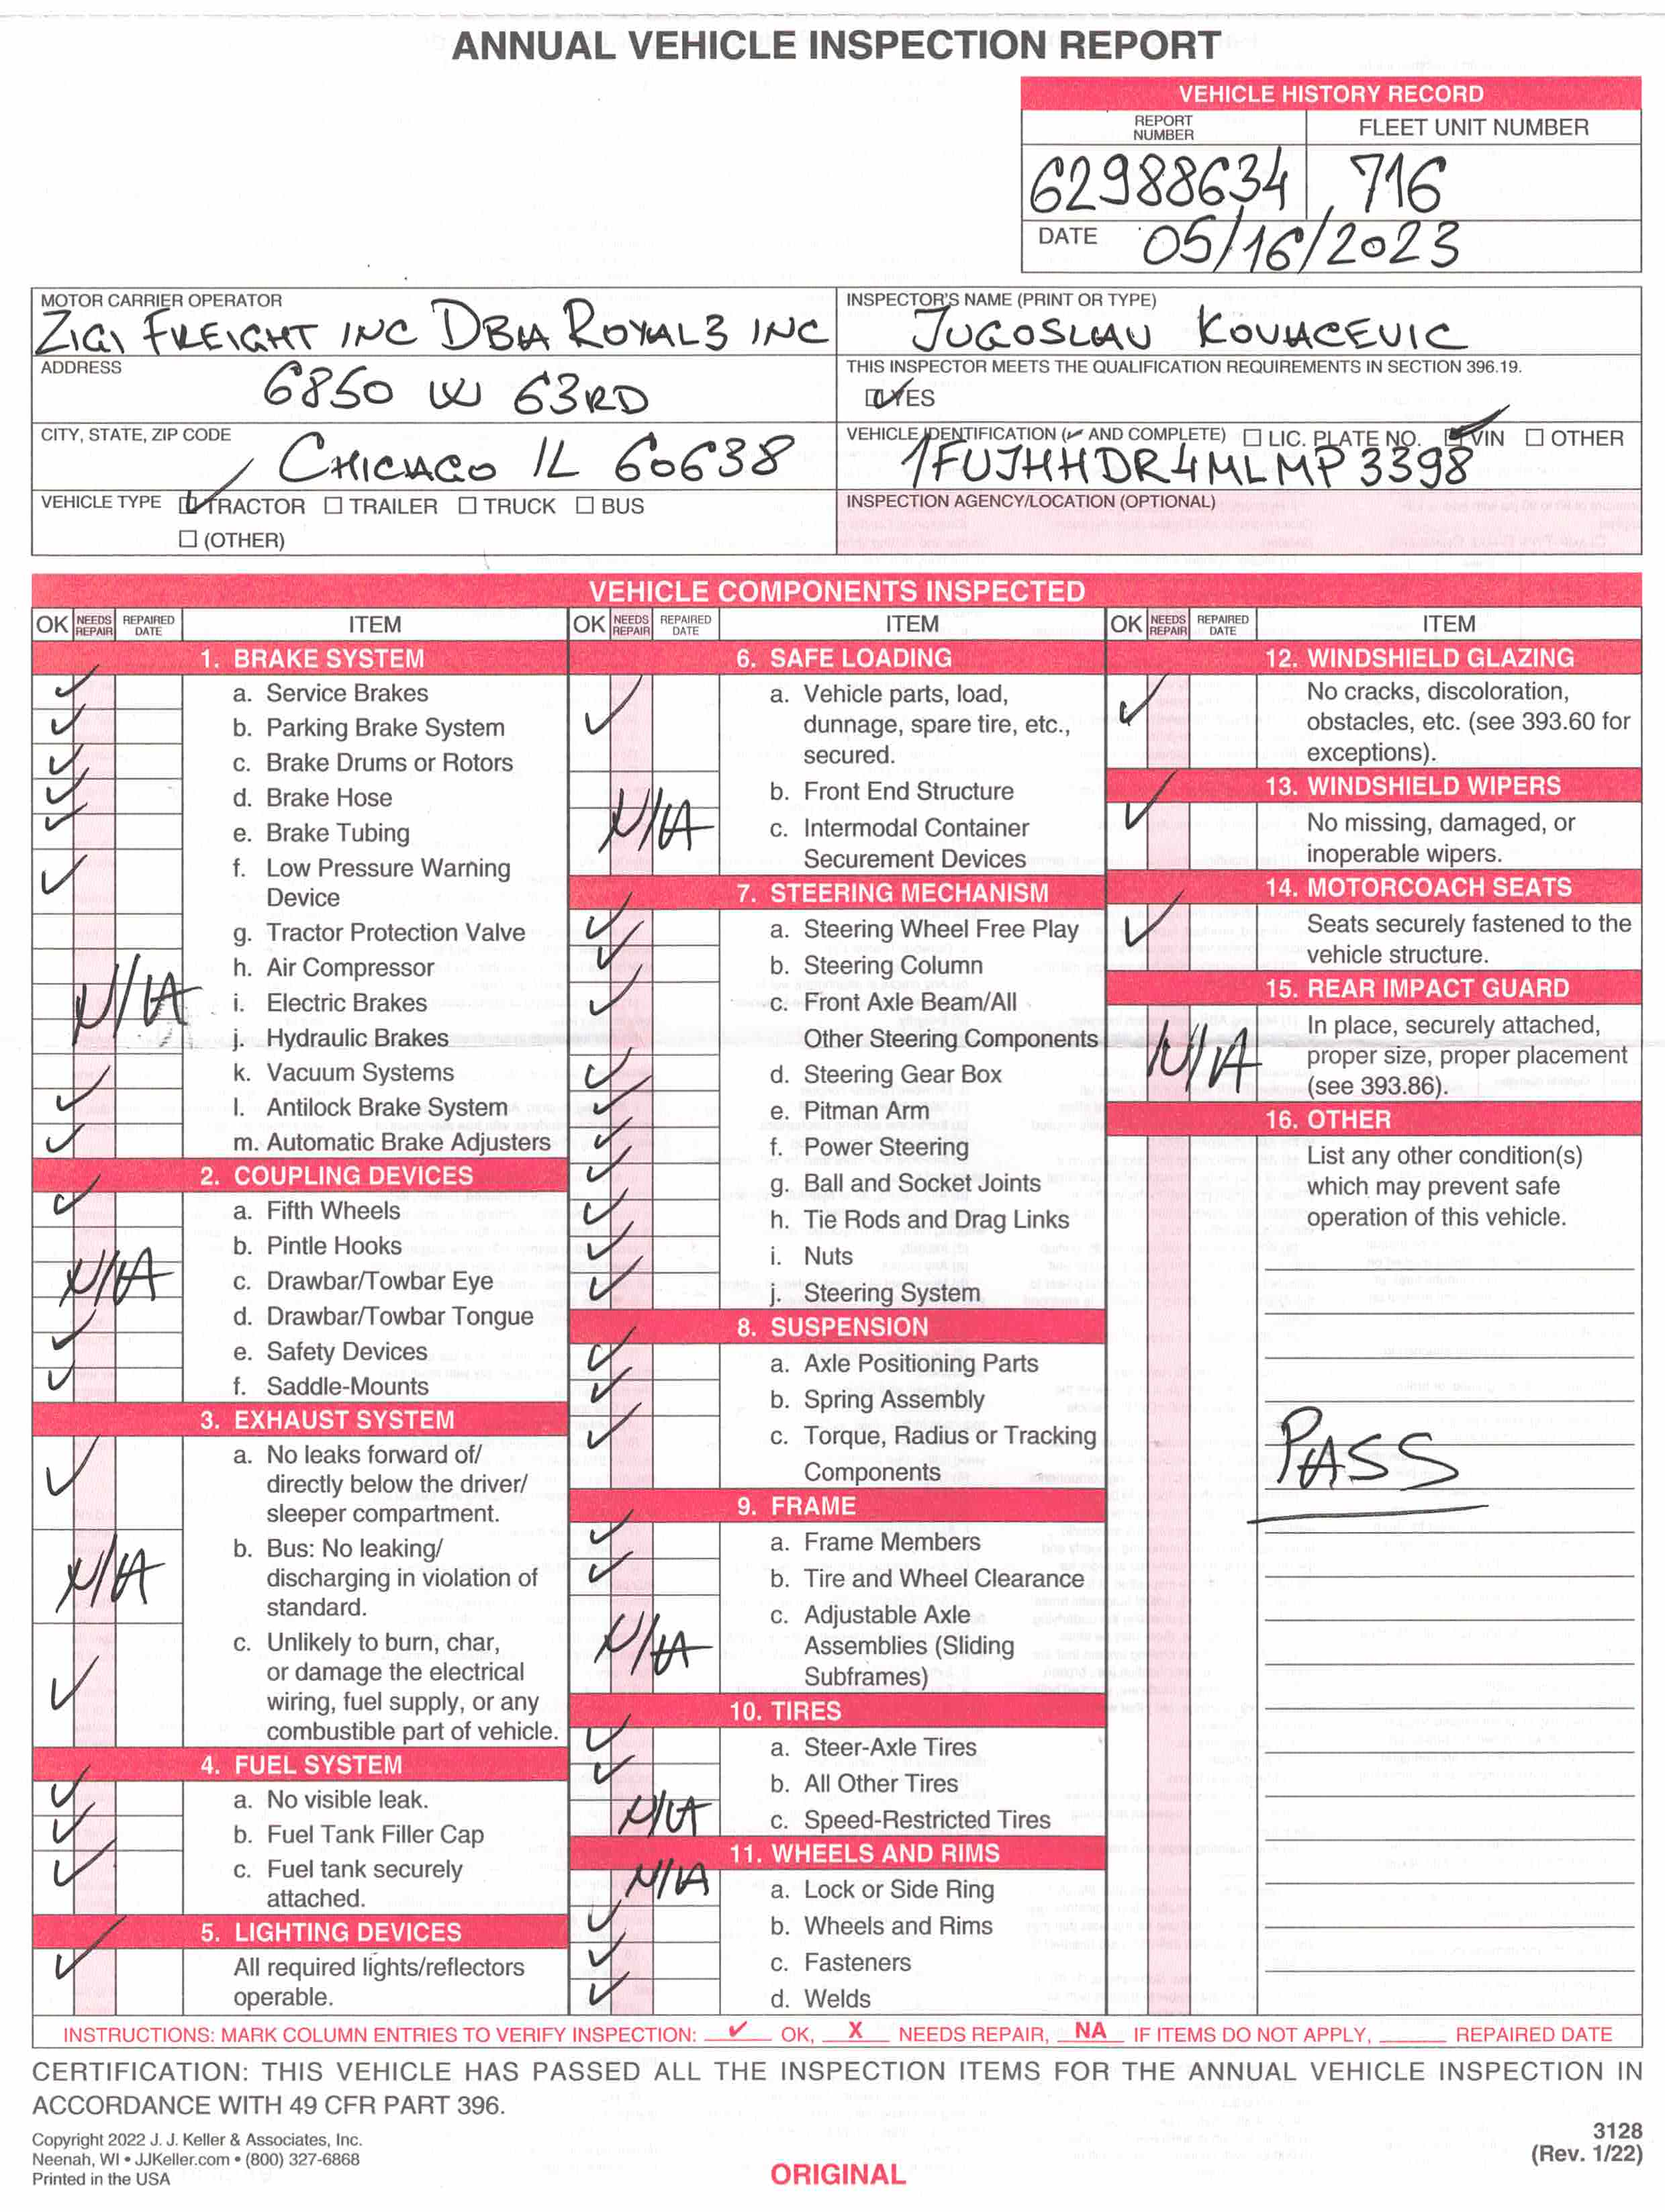 ANNUAL VEHICLE INSPECTION REPORT
VEHICLE HISTORY RECORD
REPORT NUMBER
FLEET UNIT NUMBER
62988634
716
DATE 05/16/2023
MOTOR CARRIER OPERATOR
ZIGI FREIGHT INC DBA ROYAL3 INC
ADDRESS
6850 W 63RD
CITY, STATE, ZIP CODE
CHICAGO IL 60638
VEHICLE TYPE ☑ TRACTOR ☐ TRAILER ☐ TRUCK ☐ BUS
☐ (OTHER)
INSPECTOR'S NAME (PRINT OR TYPE)
JUGOSLAV KOVACEVIC
THIS INSPECTOR MEETS THE QUALIFICATION REQUIREMENTS IN SECTION 396.19.
☑ YES
VEHICLE IDENTIFICATION (✓ AND COMPLETE) ☐ LIC. PLATE NO. ☑ VIN ☐ OTHER
1FUJHHDR4MLMP3398
INSPECTION AGENCY/LOCATION (OPTIONAL)
VEHICLE COMPONENTS INSPECTED
OK NEEDS REPAIR REPAIRED DATE ITEM
1. BRAKE SYSTEM
✓ a. Service Brakes
✓ b. Parking Brake System
✓ c. Brake Drums or Rotors
✓ d. Brake Hose
✓ e. Brake Tubing
✓ f. Low Pressure Warning
Device
g. Tractor Protection Valve
h. Air Compressor
N/A i. Electric Brakes
j. Hydraulic Brakes
k. Vacuum Systems
✓ l. Antilock Brake System
✓ m. Automatic Brake Adjusters
2. COUPLING DEVICES
✓ a. Fifth Wheels
b. Pintle Hooks
N/A c. Drawbar/Towbar Eye
d. Drawbar/Towbar Tongue
✓ e. Safety Devices
✓ f. Saddle-Mounts
3. EXHAUST SYSTEM
✓ a. No leaks forward of/
directly below the driver/
sleeper compartment.
N/A b. Bus: No leaking/
discharging in violation of
standard.
✓ c. Unlikely to burn, char,
or damage the electrical
wiring, fuel supply, or any
combustible part of vehicle.
4. FUEL SYSTEM
✓ a. No visible leak.
✓ b. Fuel Tank Filler Cap
✓ c. Fuel tank securely
attached.
5. LIGHTING DEVICES
✓ All required lights/reflectors
operable.
OK NEEDS REPAIR REPAIRED DATE ITEM
6. SAFE LOADING
✓ a. Vehicle parts, load,
dunnage, spare tire, etc.,
secured.
b. Front End Structure
N/A c. Intermodal Container
Securement Devices
7. STEERING MECHANISM
✓ a. Steering Wheel Free Play
✓ b. Steering Column
✓ c. Front Axle Beam/All
Other Steering Components
✓ d. Steering Gear Box
✓ e. Pitman Arm
✓ f. Power Steering
✓ g. Ball and Socket Joints
✓ h. Tie Rods and Drag Links
✓ i. Nuts
✓ j. Steering System
8. SUSPENSION
✓ a. Axle Positioning Parts
✓ b. Spring Assembly
✓ c. Torque, Radius or Tracking
Components
9. FRAME
✓ a. Frame Members
✓ b. Tire and Wheel Clearance
N/A c. Adjustable Axle
Assemblies (Sliding
Subframes)
10. TIRES
✓ a. Steer-Axle Tires
✓ b. All Other Tires
N/A c. Speed-Restricted Tires
11. WHEELS AND RIMS
N/A a. Lock or Side Ring
✓ b. Wheels and Rims
✓ c. Fasteners
✓ d. Welds
OK NEEDS REPAIR REPAIRED DATE ITEM
12. WINDSHIELD GLAZING
✓ No cracks, discoloration,
obstacles, etc. (see 393.60 for
exceptions).
13. WINDSHIELD WIPERS
✓ No missing, damaged, or
inoperable wipers.
14. MOTORCOACH SEATS
✓ Seats securely fastened to the
vehicle structure.
15. REAR IMPACT GUARD
N/A In place, securely attached,
proper size, proper placement
(see 393.86).
16. OTHER
List any other condition(s)
which may prevent safe
operation of this vehicle.
PASS
INSTRUCTIONS: MARK COLUMN ENTRIES TO VERIFY INSPECTION: ✓ OK, X NEEDS REPAIR, NA IF ITEMS DO NOT APPLY, ____ REPAIRED DATE
CERTIFICATION: THIS VEHICLE HAS PASSED ALL THE INSPECTION ITEMS FOR THE ANNUAL VEHICLE INSPECTION IN
ACCORDANCE WITH 49 CFR PART 396.
Copyright 2022 J. J. Keller & Associates, Inc.
Neenah, WI • JJKeller.com • (800) 327-6868
Printed in the USA
ORIGINAL
3128
(Rev. 1/22)